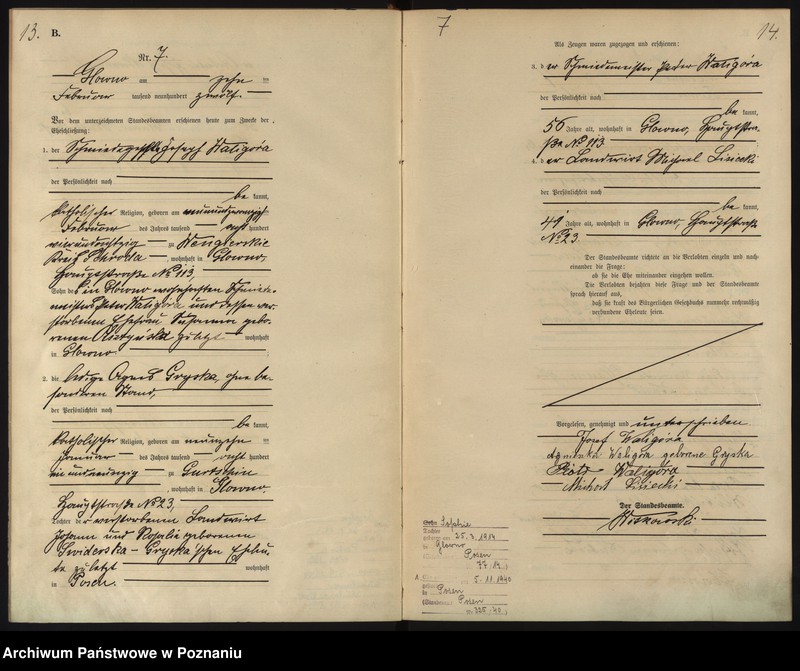 13.
B.
Nr. 7.
Glowno am zehn ten
Februar tausend neunhundert zwölf.
Vor dem unterzeichneten Standesbeamten erschienen heute zum Zwecke der
Eheschließung:
1. der Schmiedegeselle Joseph Waligóra
der Persönlichkeit nach
be kannt,
katholischer Religion, geboren am neunundzwanzig
Februar des Jahres tausend acht hundert
vierundachtzig zu Wengierskie
Kreis Schroda, wohnhaft in Glowno,
Hauptstraße No 113,
Sohn des in Glowno wohnhaften Schmiede-
meisters Peter Waligóra und dessen ver-
storbenen Ehefrau Susanna gebo-
renen zuletzt wohnhaft
in Glowno.
2. die ledige Agnes Gryska, ohne be-
sonderen Stand,
der Persönlichkeit nach
be kannt,
katholischer Religion, geboren am neunzehn ten
Januar des Jahres tausend acht hundert
einundneunzig zu Gurtschin
, wohnhaft in Glowno,
Hauptstraße No 23,
Tochter der verstorbenen Landwirt
Johann und Rosalie geborenen
Swiderska-Gryska'schen Eheleu-
te zuletzt wohnhaft
in Posen.
7
14.
Als Zeugen waren zugezogen und erschienen:
3. der Schmiedemeister Peter Waligóra
der Persönlichkeit nach
be kannt,
56 Jahre alt, wohnhaft in Glowno, Hauptstra-
ße No 113
4. der Landwirt Michael Lisiecki
der Persönlichkeit nach
be kannt,
49 Jahre alt, wohnhaft in Glowno, Hauptstraße
No 23.
Der Standesbeamte richtete an die Verlobten einzeln und nach-
einander die Frage:
ob sie die Ehe miteinander eingehen wollen.
Die Verlobten bejahten diese Frage und der Standesbeamte
sprach hierauf aus,
daß sie kraft des Bürgerlichen Gesetzbuchs nunmehr rechtmäßig
verbundene Eheleute seien.
Vorgelesen, genehmigt und unterschrieben
Józef Waligóra
Agnieszka Waligóra geborene Gryska
Piotr Waligóra
Michał Lisiecki
Der Standesbeamte.
Sophie
Tochter
geboren am 25.3.1914
in Glowno
Posen
5.11.1940
Posen
Posen
Archiwum Państwowe w Poznaniu